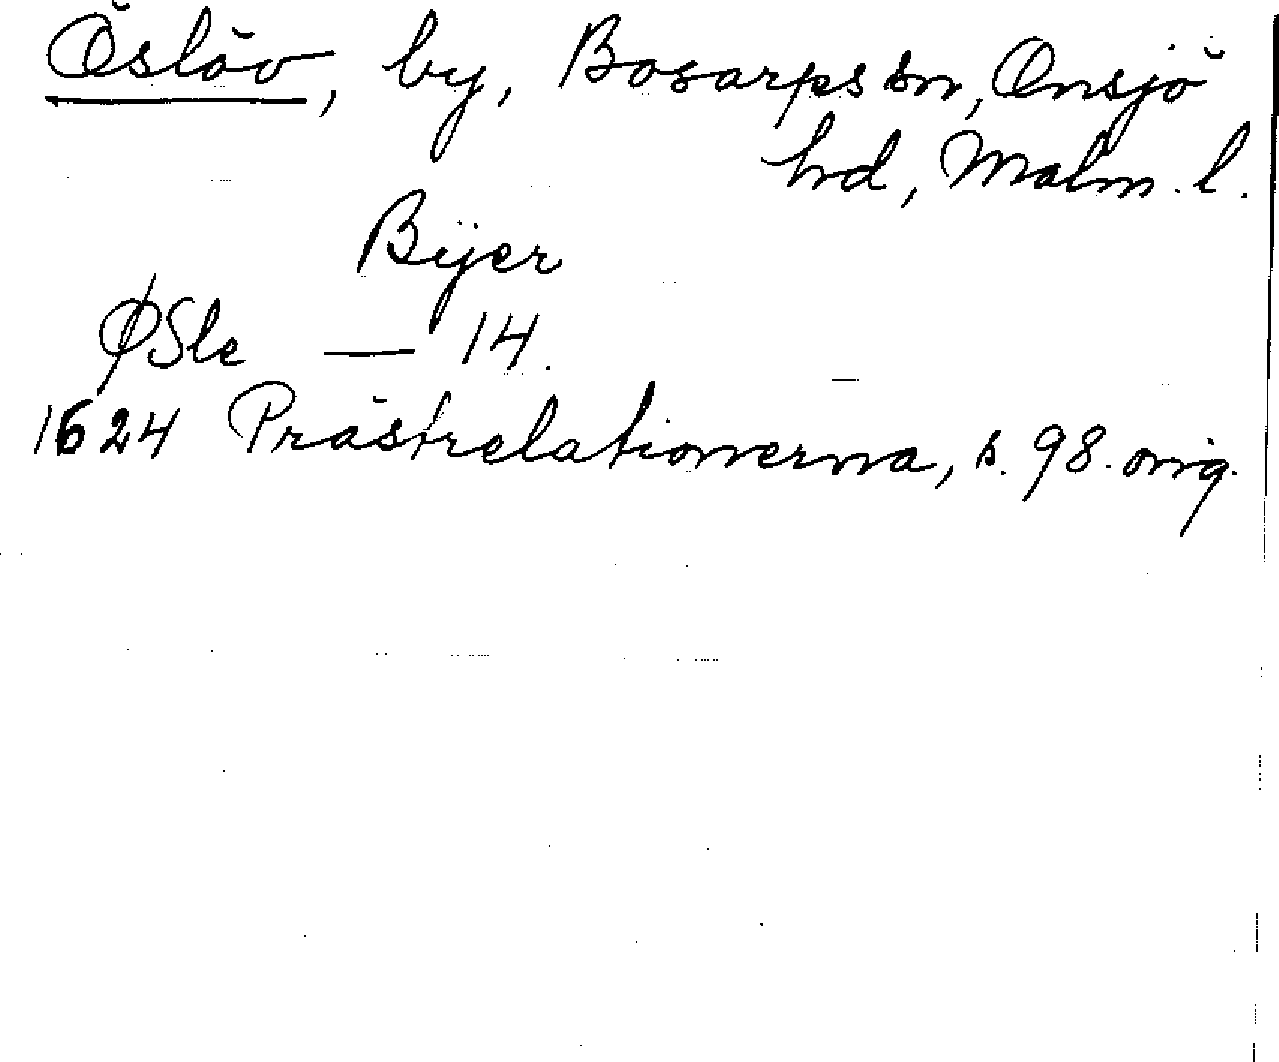 Öslöv, by, Bosarps sn, Onsjö
hd, Malm. l.
Bÿer
ØSle — 14.
1624 Prästrelationerna, s. 98. orig.